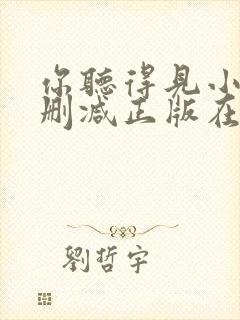 你聽得見小
删减正版在
劉哲宇